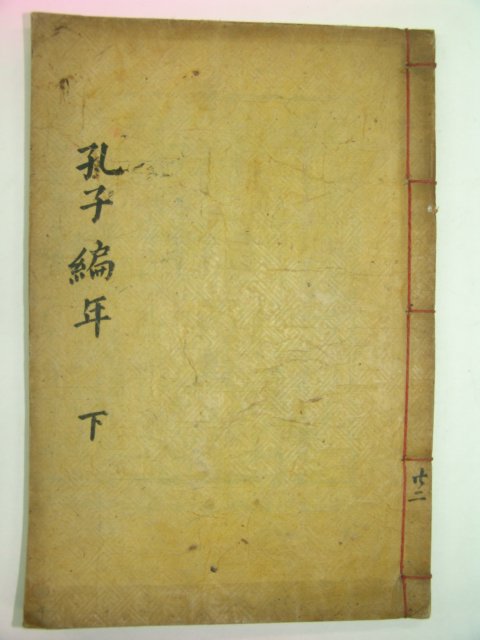 孔子編年 下
共二